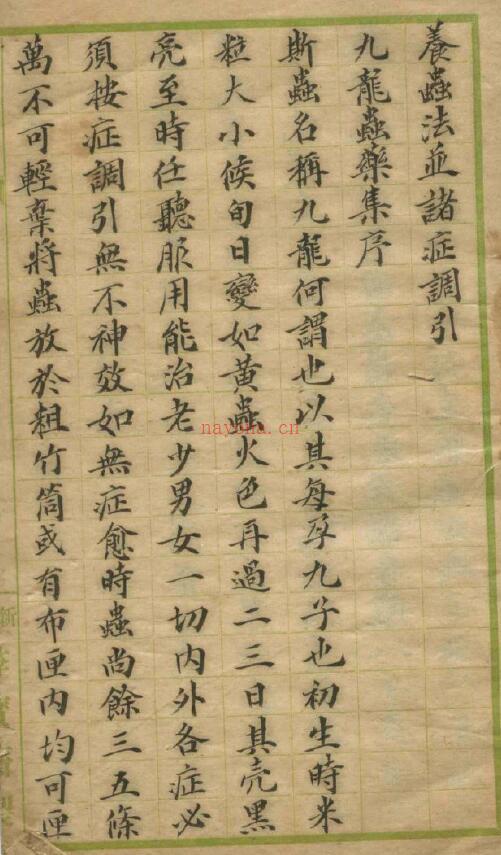 養蟲法並諸症調引
九龍蟲藥集序
斯蟲名稱九龍何謂也以其每孕九子也初生時米
粒大小候旬日變如黃蟲火色再過二三日其壳黑
亮至時任聽服用能治老少男女一切內外各症必
須按症調引無不神效如無症愈時蟲尚餘三五條
萬不可輕棄將蟲放於粗竹筒或有布匣內均可匣
nayona.cn